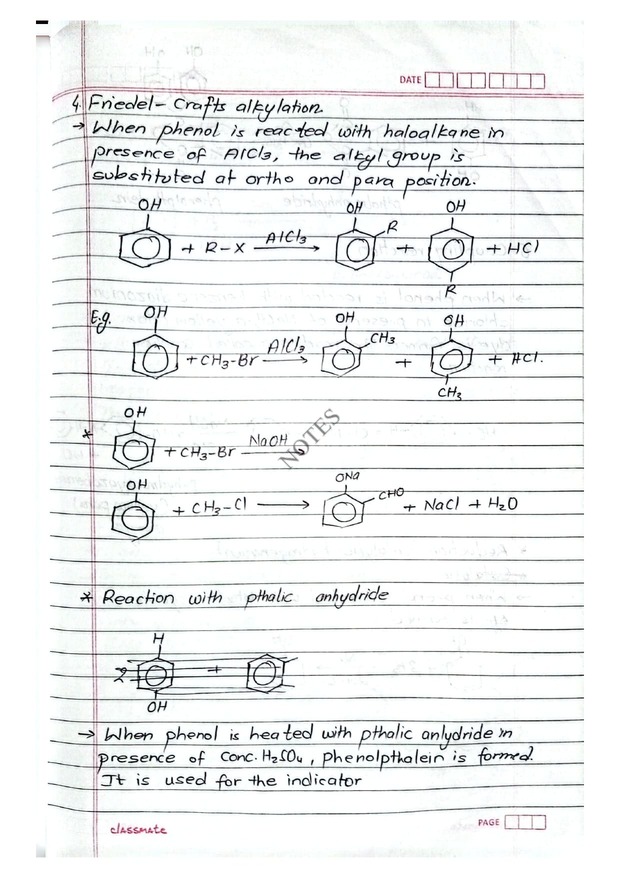 DATE
4. Friedel-Crafts alkylation.
→ When phenol is reacted with haloalkane in
presence of AlCl3, the alkyl group is
substituted at ortho and para position.
OH OH OH
+ R-X AlCl3 → R + + HCl
R
E.g. OH OH OH
+ CH3-Br AlCl3 → CH3 + + HCl.
CH3
OH
* + CH3-Br NaOH →
NOTES
OH ONa
+ CH3-Cl → CHO + NaCl + H2O
* Reaction with pthalic anhydride
H
2 +
OH
→ When phenol is heated with pthalic anlydride in
presence of Conc. H2SO4, phenolpthalein is formed.
It is used for the indicator
classmate PAGE